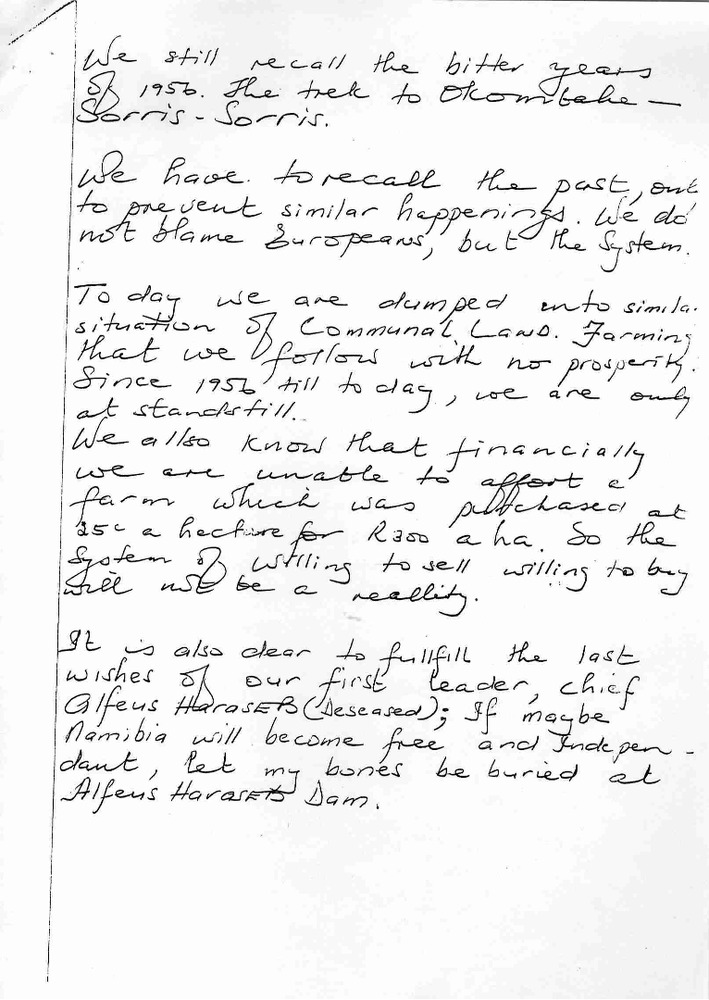 We still recall the bitter years
of 1956. The trek to Okombahe –
Sorris - Sorris.
We have to recall the past, out
to prevent similar happenings. We do
not blame Europeans, but the System.
To day we are dumped into simila
situation of Communal Land. Farming
that we follow with no prosperity.
Since 1956 till to day, we are only
at standstill.
We allso know that financially
we are unable to affort a
farm which was purchased at
25c a hecture for R300 a ha. So the
System of willing to sell willing to buy
will not be a reallity.
It is also clear to fullfill the last
wishes of our first leader, chief
Alfeus HaraseB (Deseased); If maybe
Namibia will become free and Indepen -
dant, let my bones be buried at
Alfeus HaraseB Dam.